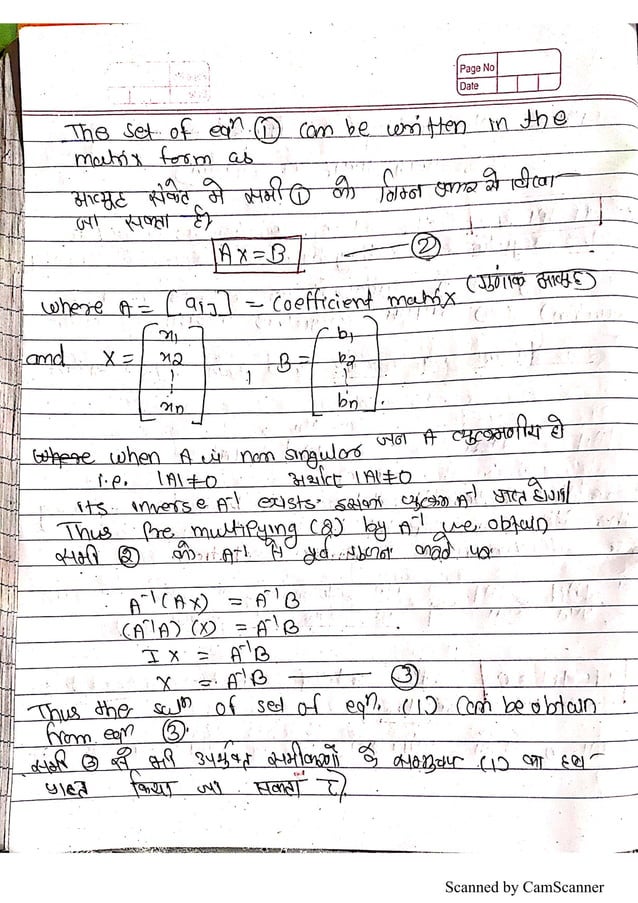 Page No
Date
The set of eqn ① can be written in the
matrix form as
आव्यूह संकेत मे समी ① को निम्न प्रकार से लिखा
जा सकता है।
Ax = B ②
where A = [aij] = coefficient matrix (गुणांक आव्यूह)
and X = [x1 x2 xn] , B = [b1 b2 bn].
where when A is non singular जब A व्युत्क्रमणीय हो
i.e. |A|≠0 अर्थात |A|≠0
its inverse A-1 exists. इसका व्युत्क्रम A-1 प्राप्त होगा
Thus Pre multiplying (2) by A-1 we obtain
समी ② को A-1 से पूर्व करने पर
A-1(AX) = A-1B
(A-1A)(X) = A-1B
IX = A-1B
X = A-1B ③
Thus the soln of set of eqn. (1) can be obtain
from eqn ③.
समी ③ से उपर्युक्त समीकरणों के समुच्चय (1) का हल
प्राप्त किया जा सकता है।
Scanned by CamScanner